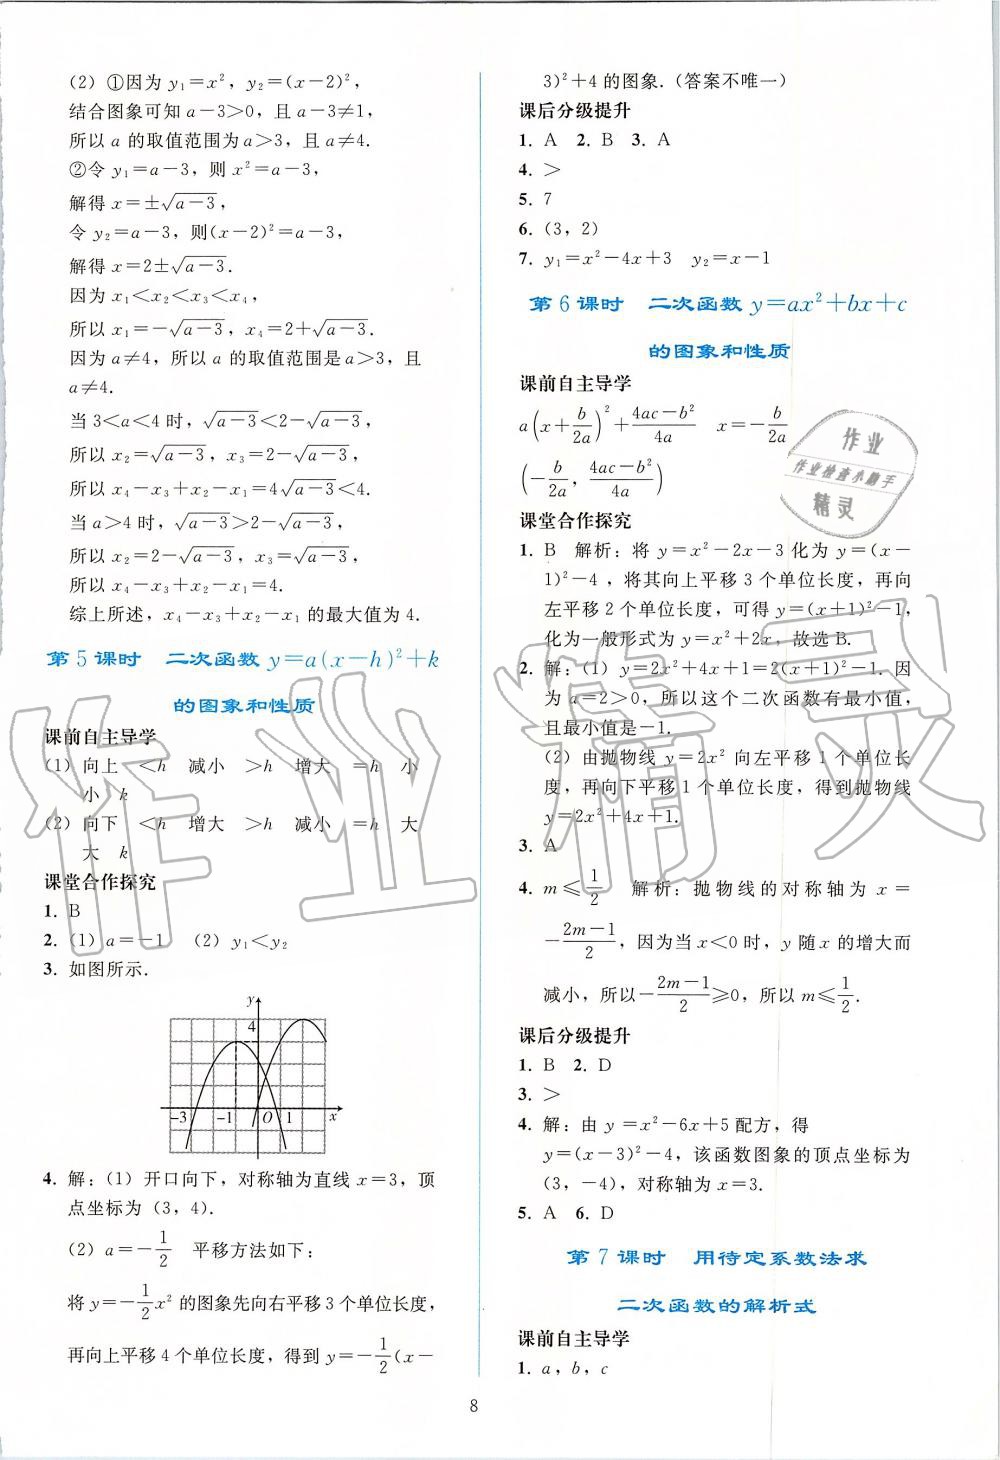 (2) ①因为 y₁＝x²，y₂＝(x－2)²，
结合图象可知 a－3＞0，且 a－3≠1，
所以 a 的取值范围为 a＞3，且 a≠4.
②令 y₁＝a－3，则 x²＝a－3，
解得 x＝±√(a－3)，
令 y₂＝a－3，则(x－2)²＝a－3，
解得 x＝2±√(a－3).
因为 x₁＜x₂＜x₃＜x₄，
所以 x₁＝－√(a－3)，x₄＝2＋√(a－3).
因为 a≠4，所以 a 的取值范围是 a＞3，且
a≠4.
当 3＜a＜4 时，√(a－3)＜2－√(a－3)，
所以 x₂＝√(a－3)，x₃＝2－√(a－3)，
所以 x₄－x₃＋x₂－x₁＝4√(a－3)＜4.
当 a＞4 时，√(a－3)＞2－√(a－3)，
所以 x₂＝2－√(a－3)，x₃＝√(a－3)，
所以 x₄－x₃＋x₂－x₁＝4.
综上所述，x₄－x₃＋x₂－x₁ 的最大值为 4.
第 5 课时　二次函数 y＝a(x－h)²＋k
的图象和性质
课前自主导学
(1) 向上　＜h　减小　＞h　增大　＝h　小
小　k
(2) 向下　＜h　增大　＞h　减小　＝h　大
大　k
课堂合作探究
1. B
2. (1) a＝－1　(2) y₁＜y₂
3. 如图所示.
y
4
－3 －1 O 1 x
4. 解：(1) 开口向下，对称轴为直线 x＝3，顶
点坐标为 (3，4).
(2) a＝－1/2　平移方法如下：
将 y＝－1/2x² 的图象先向右平移 3 个单位长度，
再向上平移 4 个单位长度，得到 y＝－1/2(x－
3)²＋4 的图象.(答案不唯一)
课后分级提升
1. A　2. B　3. A
4. ＞
5. 7
6. (3，2)
7. y₁＝x²－4x＋3　y₂＝x－1
第 6 课时　二次函数 y＝ax²＋bx＋c
的图象和性质
课前自主导学
a(x＋b/2a)²＋(4ac－b²)/4a　x＝－b/2a
(－b/2a，(4ac－b²)/4a)
课堂合作探究
1. B　解析：将 y＝x²－2x－3 化为 y＝(x－
1)²－4，将其向上平移 3 个单位长度，再向
左平移 2 个单位长度，可得 y＝(x＋1)²－1，
化为一般形式为 y＝x²＋2x，故选 B.
2. 解：(1) y＝2x²＋4x＋1＝2(x＋1)²－1. 因
为 a＝2＞0，所以这个二次函数有最小值，
且最小值是－1.
(2) 由抛物线 y＝2x² 向左平移 1 个单位长
度，再向下平移 1 个单位长度，得到抛物线
y＝2x²＋4x＋1.
3. A
4. m≤1/2　解析：抛物线的对称轴为 x＝
－(2m－1)/2，因为当 x＜0 时，y 随 x 的增大而
减小，所以－(2m－1)/2≥0，所以 m≤1/2.
课后分级提升
1. B　2. D
3. ＞
4. 解：由 y＝x²－6x＋5 配方，得
y＝(x－3)²－4，该函数图象的顶点坐标为
(3，－4)，对称轴为 x＝3.
5. A　6. D
第 7 课时　用待定系数法求
二次函数的解析式
课前自主导学
1. a，b，c
8
作业
作业检查小助手
精灵
作业精灵